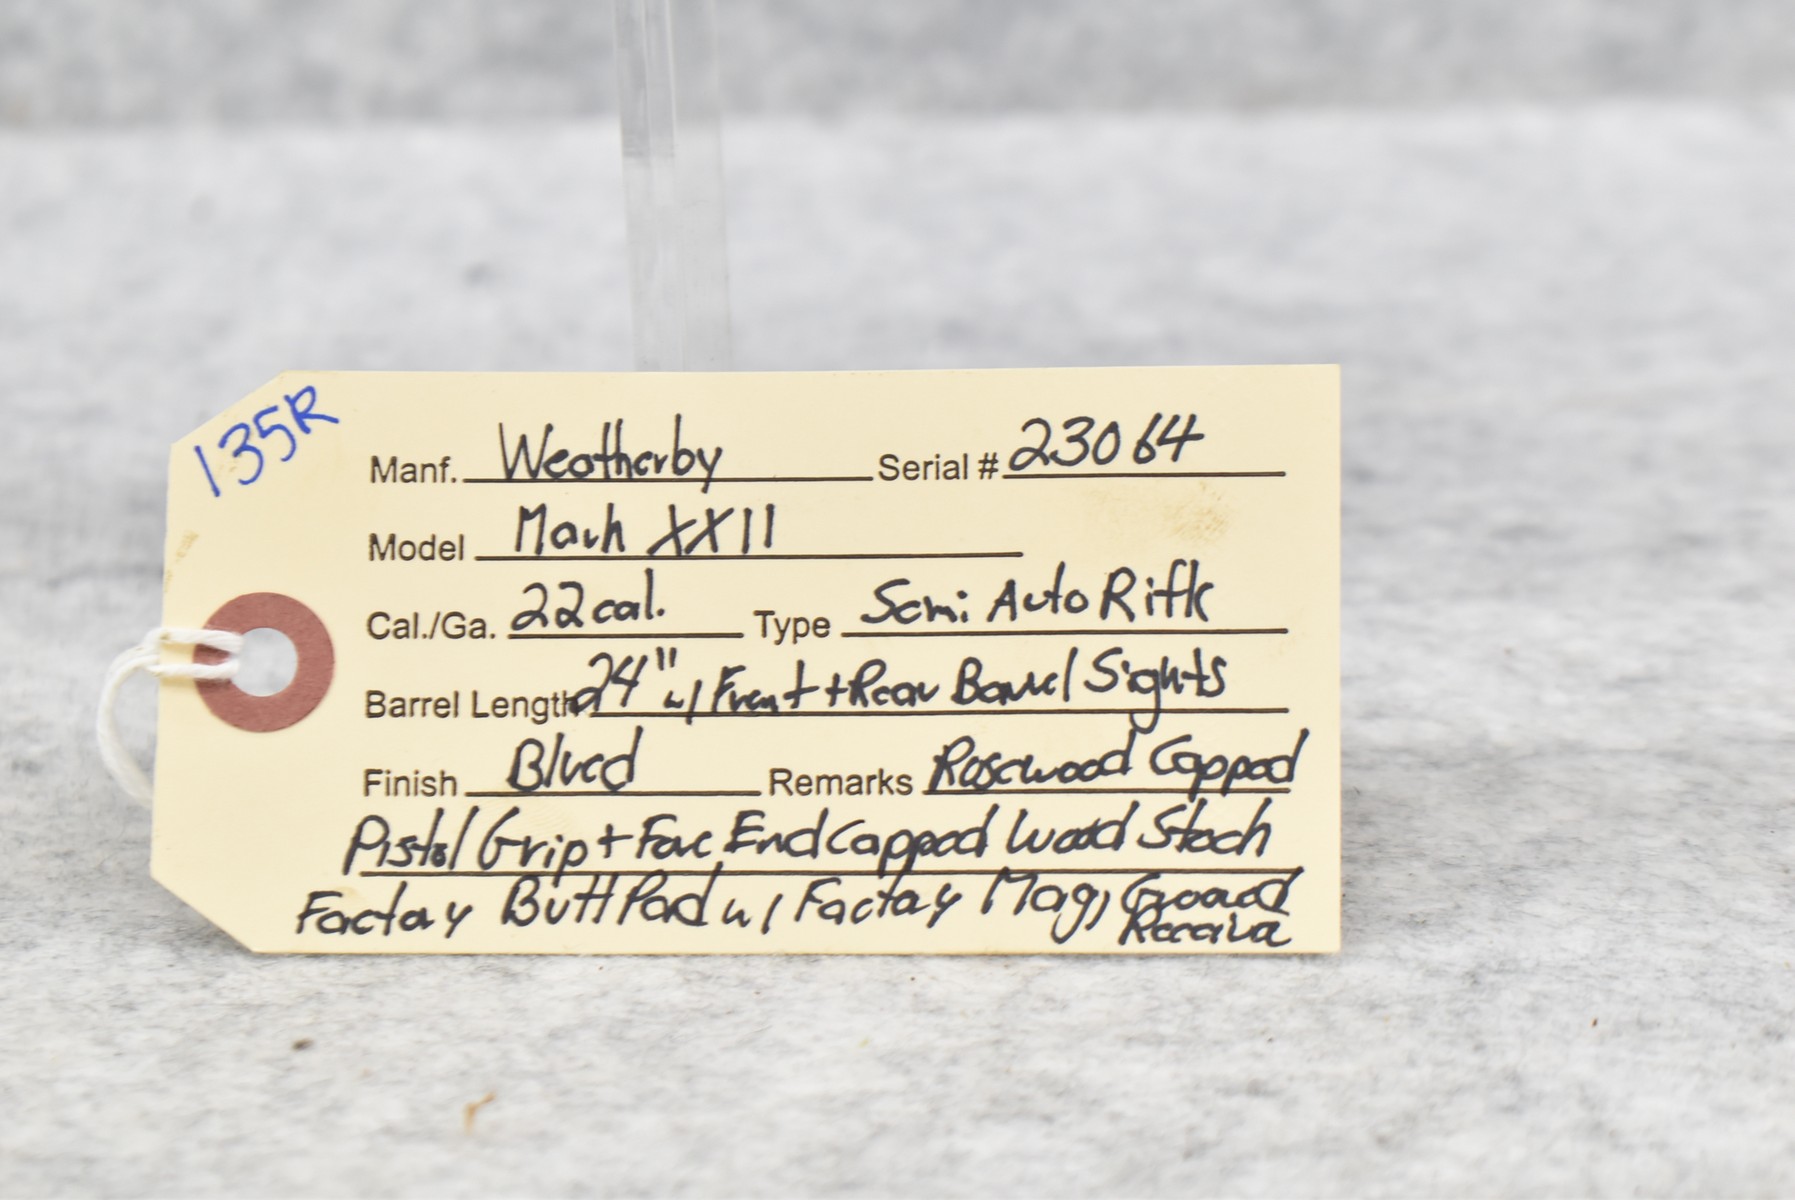 135R
Manf. Weatherby Serial # 23064
Model Mach XXII
Cal./Ga. 22 cal. Type Semi Auto Rifle
Barrel Length 24" w/ Front + Rear Barrel Sights
Finish Blued Remarks Rosewood Capped
Pistol Grip + Fore End Capped Wood Stock
Factory Butt Pad w/ Factory Mag,
Receiver